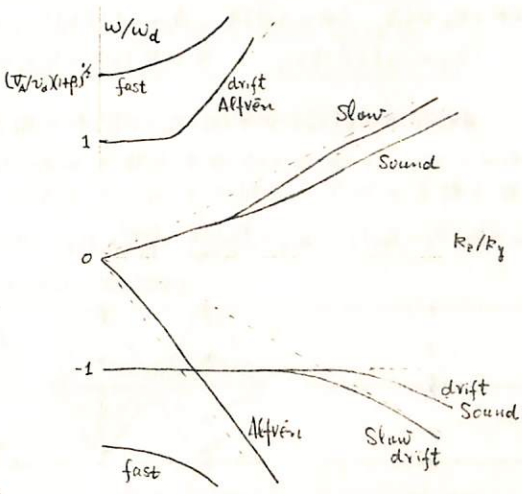 ω/ω_d
(V_A/v_d)(1+β)^½
fast
drift
Alfvén
1
Slow
Sound
0
k_z/k_y
-1
drift
Sound
Alfvén
Slow
drift
fast